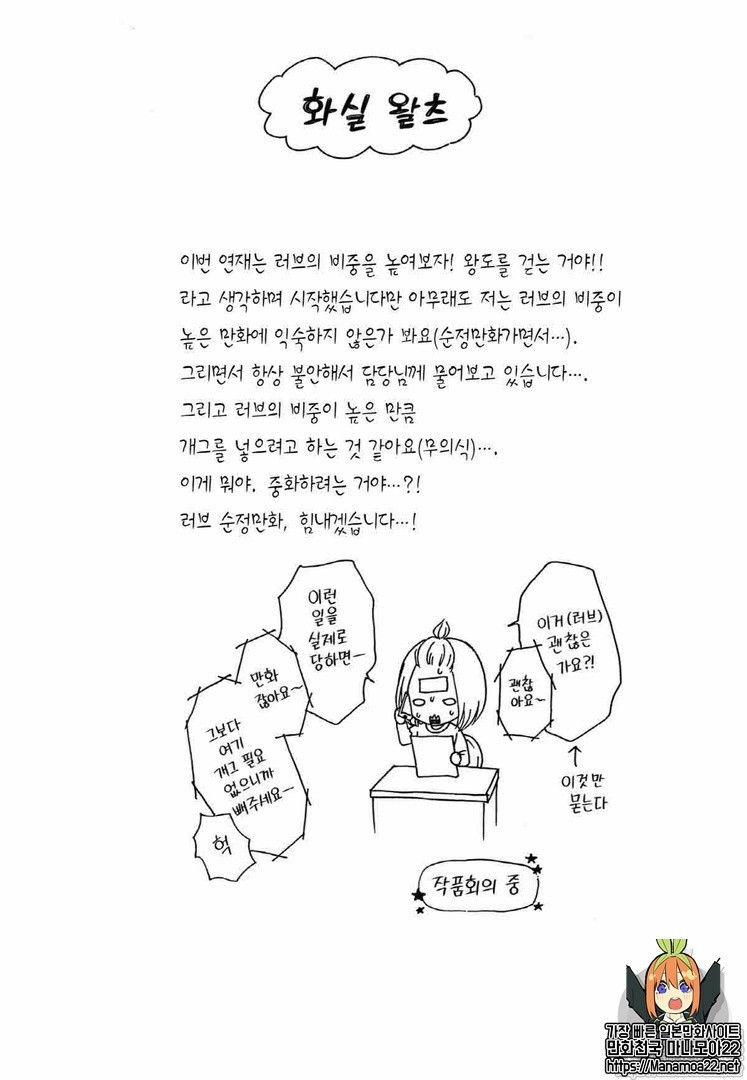 화실 왈츠
이번 연재는 러브의 비중을 높여보자! 왕도를 걷는 거야!!
라고 생각하며 시작했습니다만 아무래도 저는 러브의 비중이
높은 만화에 익숙하지 않은가 봐요(순정만화가면서…).
그리면서 항상 불안해서 담당님께 물어보고 있습니다….
그리고 러브의 비중이 높은 만큼
개그를 넣으려고 하는 것 같아요(무의식)….
이게 뭐야. 중화하려는 거야…?!
러브 순정만화, 힘내겠습니다…!
이거(러브)
괜찮은
가요?!
괜찮
아요~
이것만
묻는다
이런
일을
실제로
당하면ー
만화
잖아요~
그보다
여기
개그 필요
없으니까
빼주세요~
헉
작품회의 중
가장 빠른 일본만화사이트
만화천국 마나모아22
https://Manamoa22.net